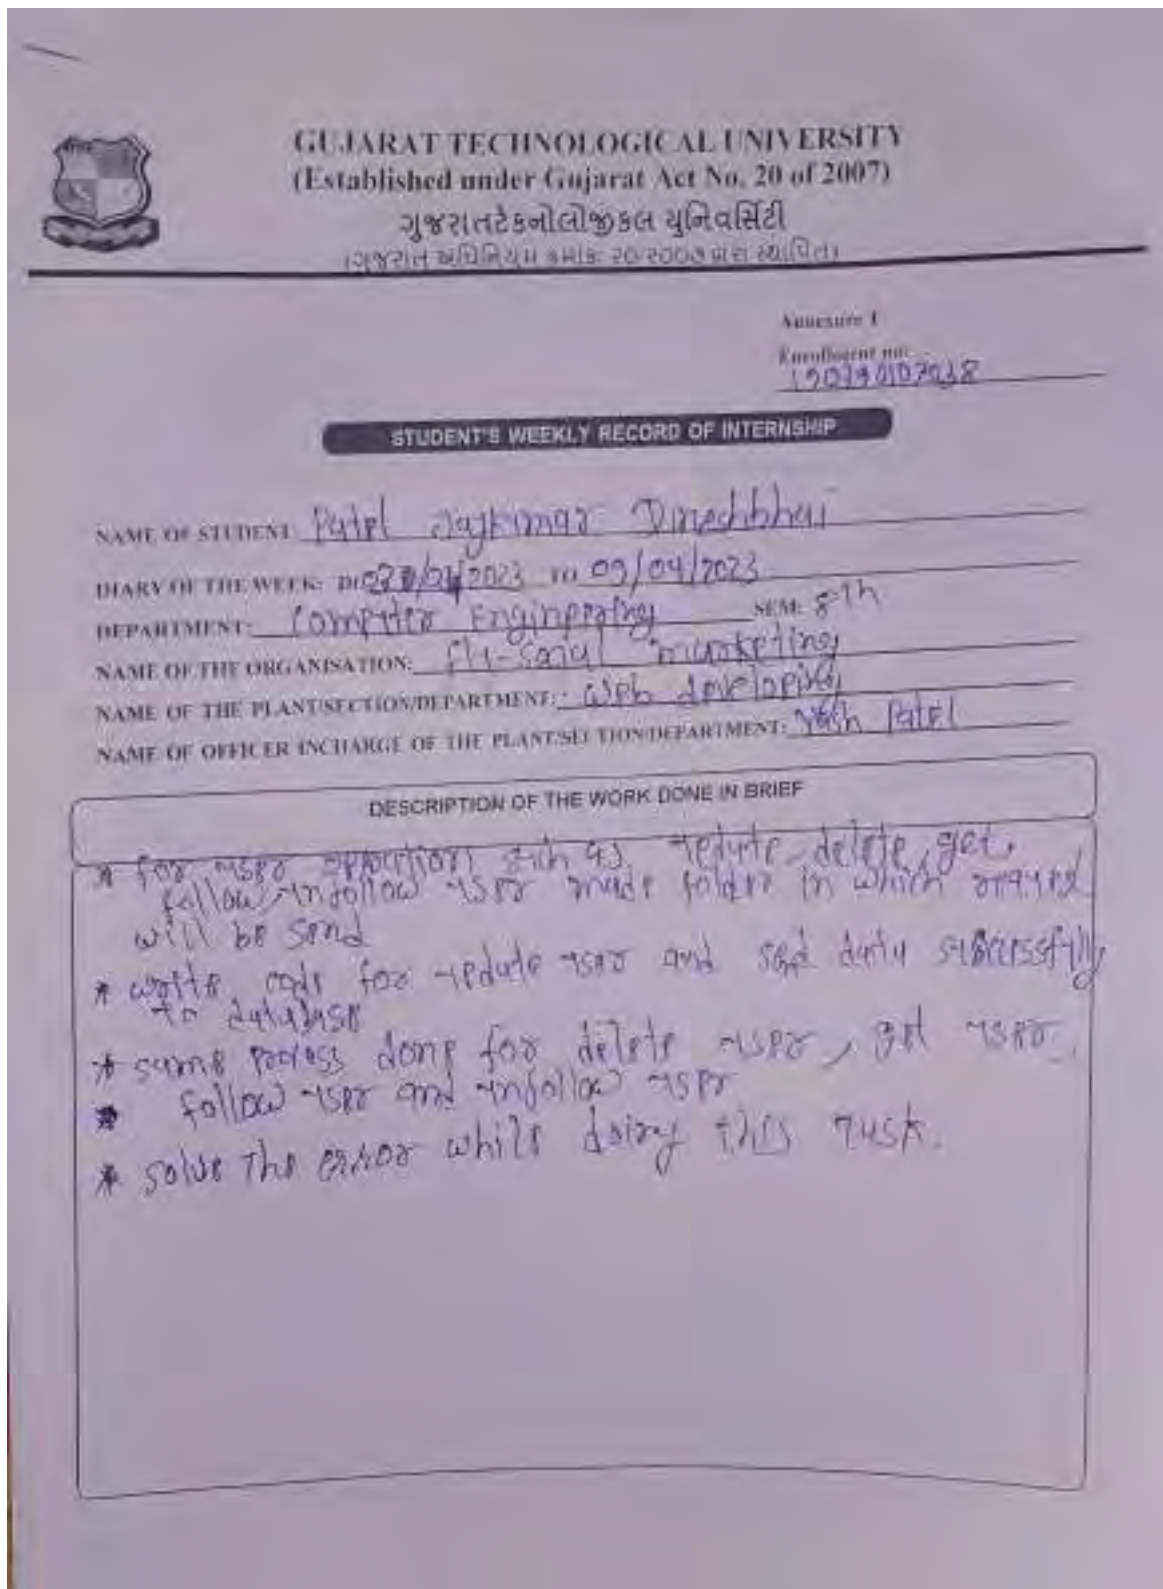 GUJARAT TECHNOLOGICAL UNIVERSITY
(Established under Gujarat Act No. 20 of 2007)
ગુજરાતટેકનોલોજીકલ યુનિવર્સિટી
(ગુજરાત અધિનિયમ ક્રમાંક: ૨૦/૨૦૦૭ દ્વારા સ્થાપિત)
Annexure 1
Enrollment no:
STUDENT'S WEEKLY RECORD OF INTERNSHIP
NAME OF STUDENT: Patel Rajkumar Dineshbhai
DIARY OF THE WEEK: /2023 TO 09/04/2023
DEPARTMENT: Computer Engineering SEM: 8th
NAME OF THE ORGANISATION: marketing
NAME OF THE PLANT/SECTION/DEPARTMENT: web developing
NAME OF OFFICER INCHARGE OF THE PLANT/SECTION/DEPARTMENT: Yash Patel
DESCRIPTION OF THE WORK DONE IN BRIEF
* for user operation such as update, delete, get,
follow, unfollow user made folder in which request
will be send
* write code for update user and send data successfully
to database
* same process done for delete user, get user,
follow user and unfollow user
* solve the error while doing this task.